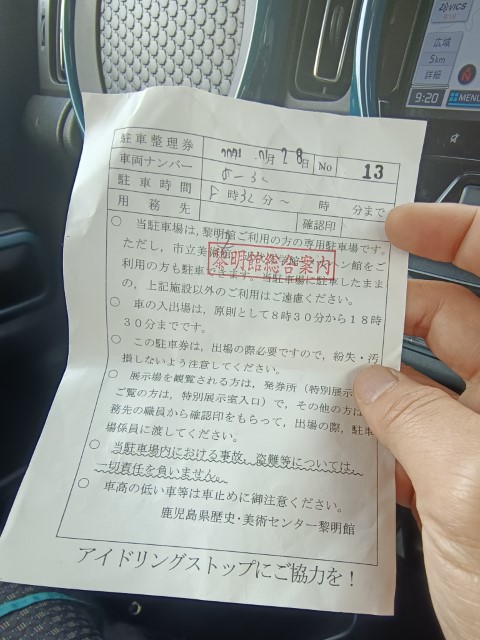 VICS
広域
5km
詳細
9:20
MENU
駐車整理券
月28日 No 13
車両ナンバー
駐車時間
8時32分～ 時 分まで
用務先
確認印
○ 当駐車場は，黎明館ご利用の方の専用駐車場です。
ただし，市立美術
トン館をご
利用の方も駐車
当駐車場に駐車したまま
の，上記施設以外のご利用はご遠慮ください。
黎明館総合案内
○ 車の入出場は，原則として8時30分から18時
30分までです。
○ この駐車券は，出場の際必要ですので，紛失・汚
損しないよう注意してください。
○ 展示場を観覧される方は，発券所（特別展示
ご覧の方は，特別展示室入口）で，その他の方は
務先の職員から確認印をもらって，出場の際，駐車
場係員に渡してください。
○ 当駐車場内における事故，盗難等については，
一切責任を負いません。
○ 車高の低い車等は車止めに御注意ください。
鹿児島県歴史・美術センター黎明館
アイドリングストップにご協力を！